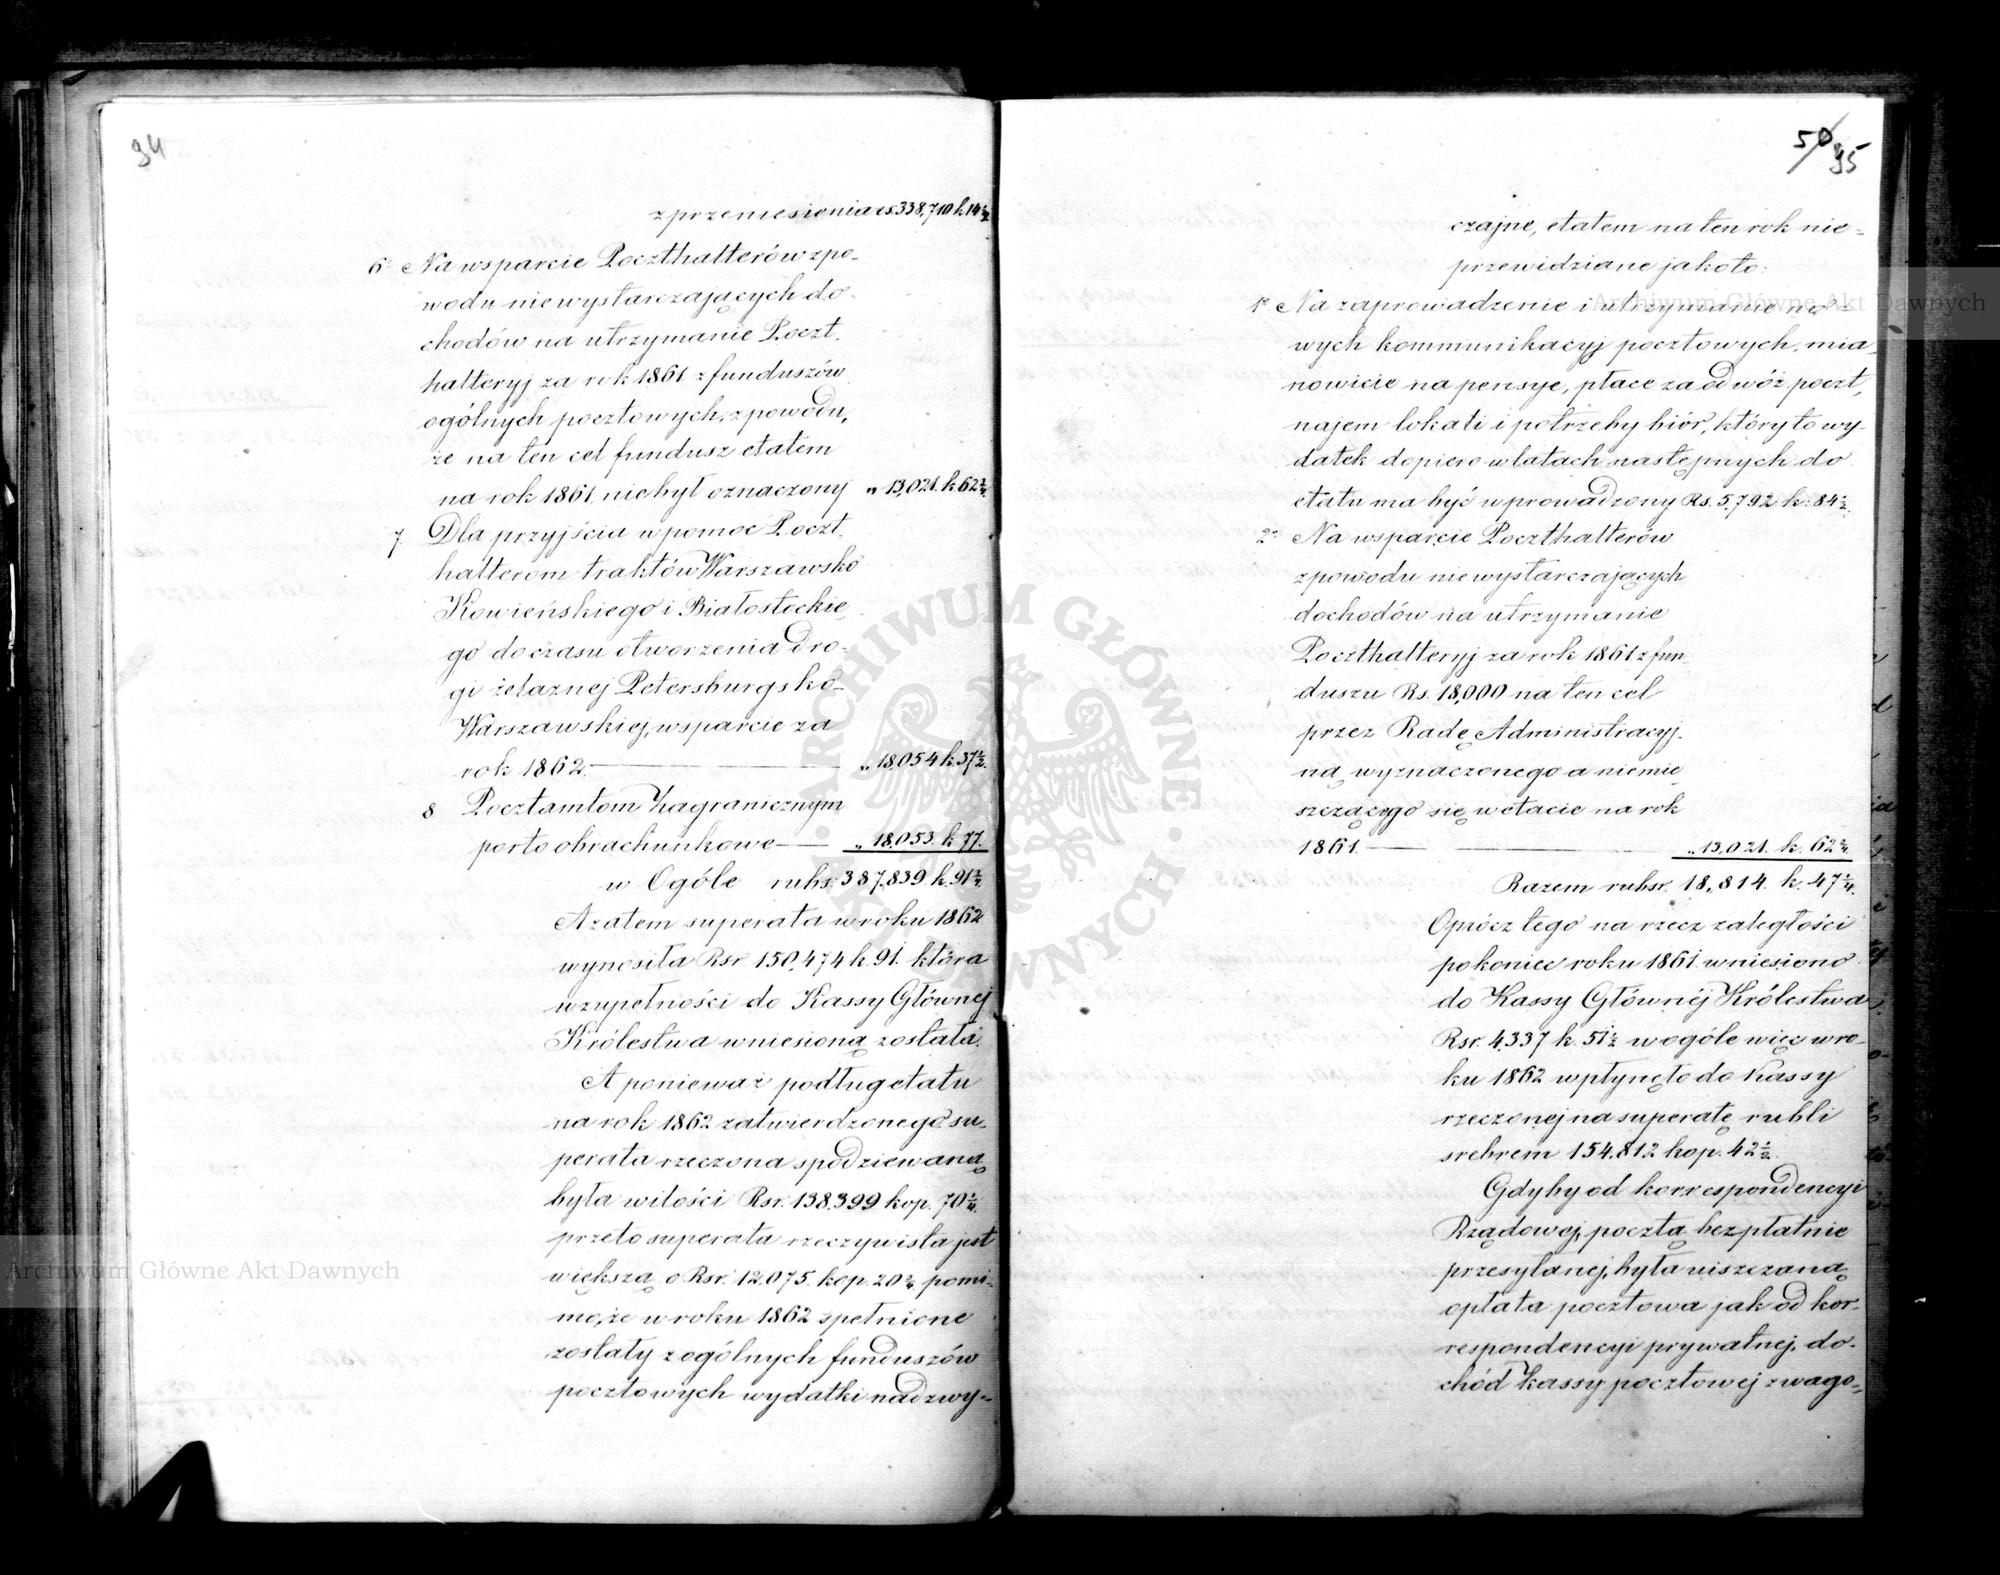 94
z przeniesienia rs. 338,710 k. 14 1/2
6° Na wsparcie Poczthalterów z po-
wodu niewystarczających do-
chodów na utrzymanie Poczt-
halteryj za rok 1861 z funduszów
ogólnych pocztowych, z powodu,
że na ten cel fundusz etatem
na rok 1861. nie był oznaczony „ 13,021. k. 62 3/4.
7. Dla przyjścia w pomoc Poczt-
halterom traktów Warszawsko
Kowieńskiego i Białostockie-
go do czasu otworzenia dro-
gi żelaznej Petersburgsko-
Warszawskiej, wsparcie za
rok 1862. „ 18,054 k. 37 1/2.
8 Pocztamtom Zagranicznym
porto obrachunkowe „ 18,053. k. 77.
w Ogóle rubs. 387,839. k. 91 3/4.
A zatem superata w roku 1862
wynosiła Rsr. 150,474 k. 91. która
w zupełności do Kassy Głównej
Królestwa wniesioną została.
A ponieważ podług etatu
na rok 1862 zatwierdzonego su-
perata rzeczona spodziewaną
była w ilości Rsr. 138,399 kop. 70 1/4.
przeto superata rzeczywista jest
większą o Rsr. 12,075. kop. 20 3/4. pomi-
mo, że w roku 1862 spełnione
zostały z ogólnych funduszów
pocztowych wydatki nadzwy-
50 95
czajne, etatem na ten rok nie-
przewidziane jako to:
1° Na zaprowadzenie i utrzymanie no-
wych kommunikacyj pocztowych, mia-
nowicie na pensye, płace za odwóz poczt,
najem lokali i potrzeby biór, który to wy-
datek dopiero w latach następnych do
etatu ma być wprowadzony Rs. 5,792 k. 84 1/2.
2° Na wsparcie Poczthalterów
z powodu niewystarczających
dochodów na utrzymanie
Poczthalteryj za rok 1861 z fun-
duszu Rs. 18,000 na ten cel
przez Radę Administracyj-
ną wyznaczonego a niemie-
szczącego się w etacie na rok
1861. „ 13,021. k. 62 3/4.
Razem rubsr. 18,814. k. 47 1/4.
Oprócz tego na rzecz zaległości
po koniec roku 1861. wniesiono
do Kassy Głównéj Królestwa
Rsr. 4,337 k. 51 1/2 w ogóle więc w ro-
ku 1862 wpłynęło do Kassy
rzeczonej na superatę rubli
srebrem 154,812 kop. 42 1/2.
Gdyby od korrespondencyi
Rządowej, pocztą bezpłatnie
przesyłanej, była uiszczaną
opłata pocztowa jak od kor-
respondencyi prywatnej, do-
chód Kassy pocztowej z wago-
Archiwum Główne Akt Dawnych
Archiwum Główne Akt Dawnych
ARCHIWUM GŁÓWNE AKT DAWNYCH